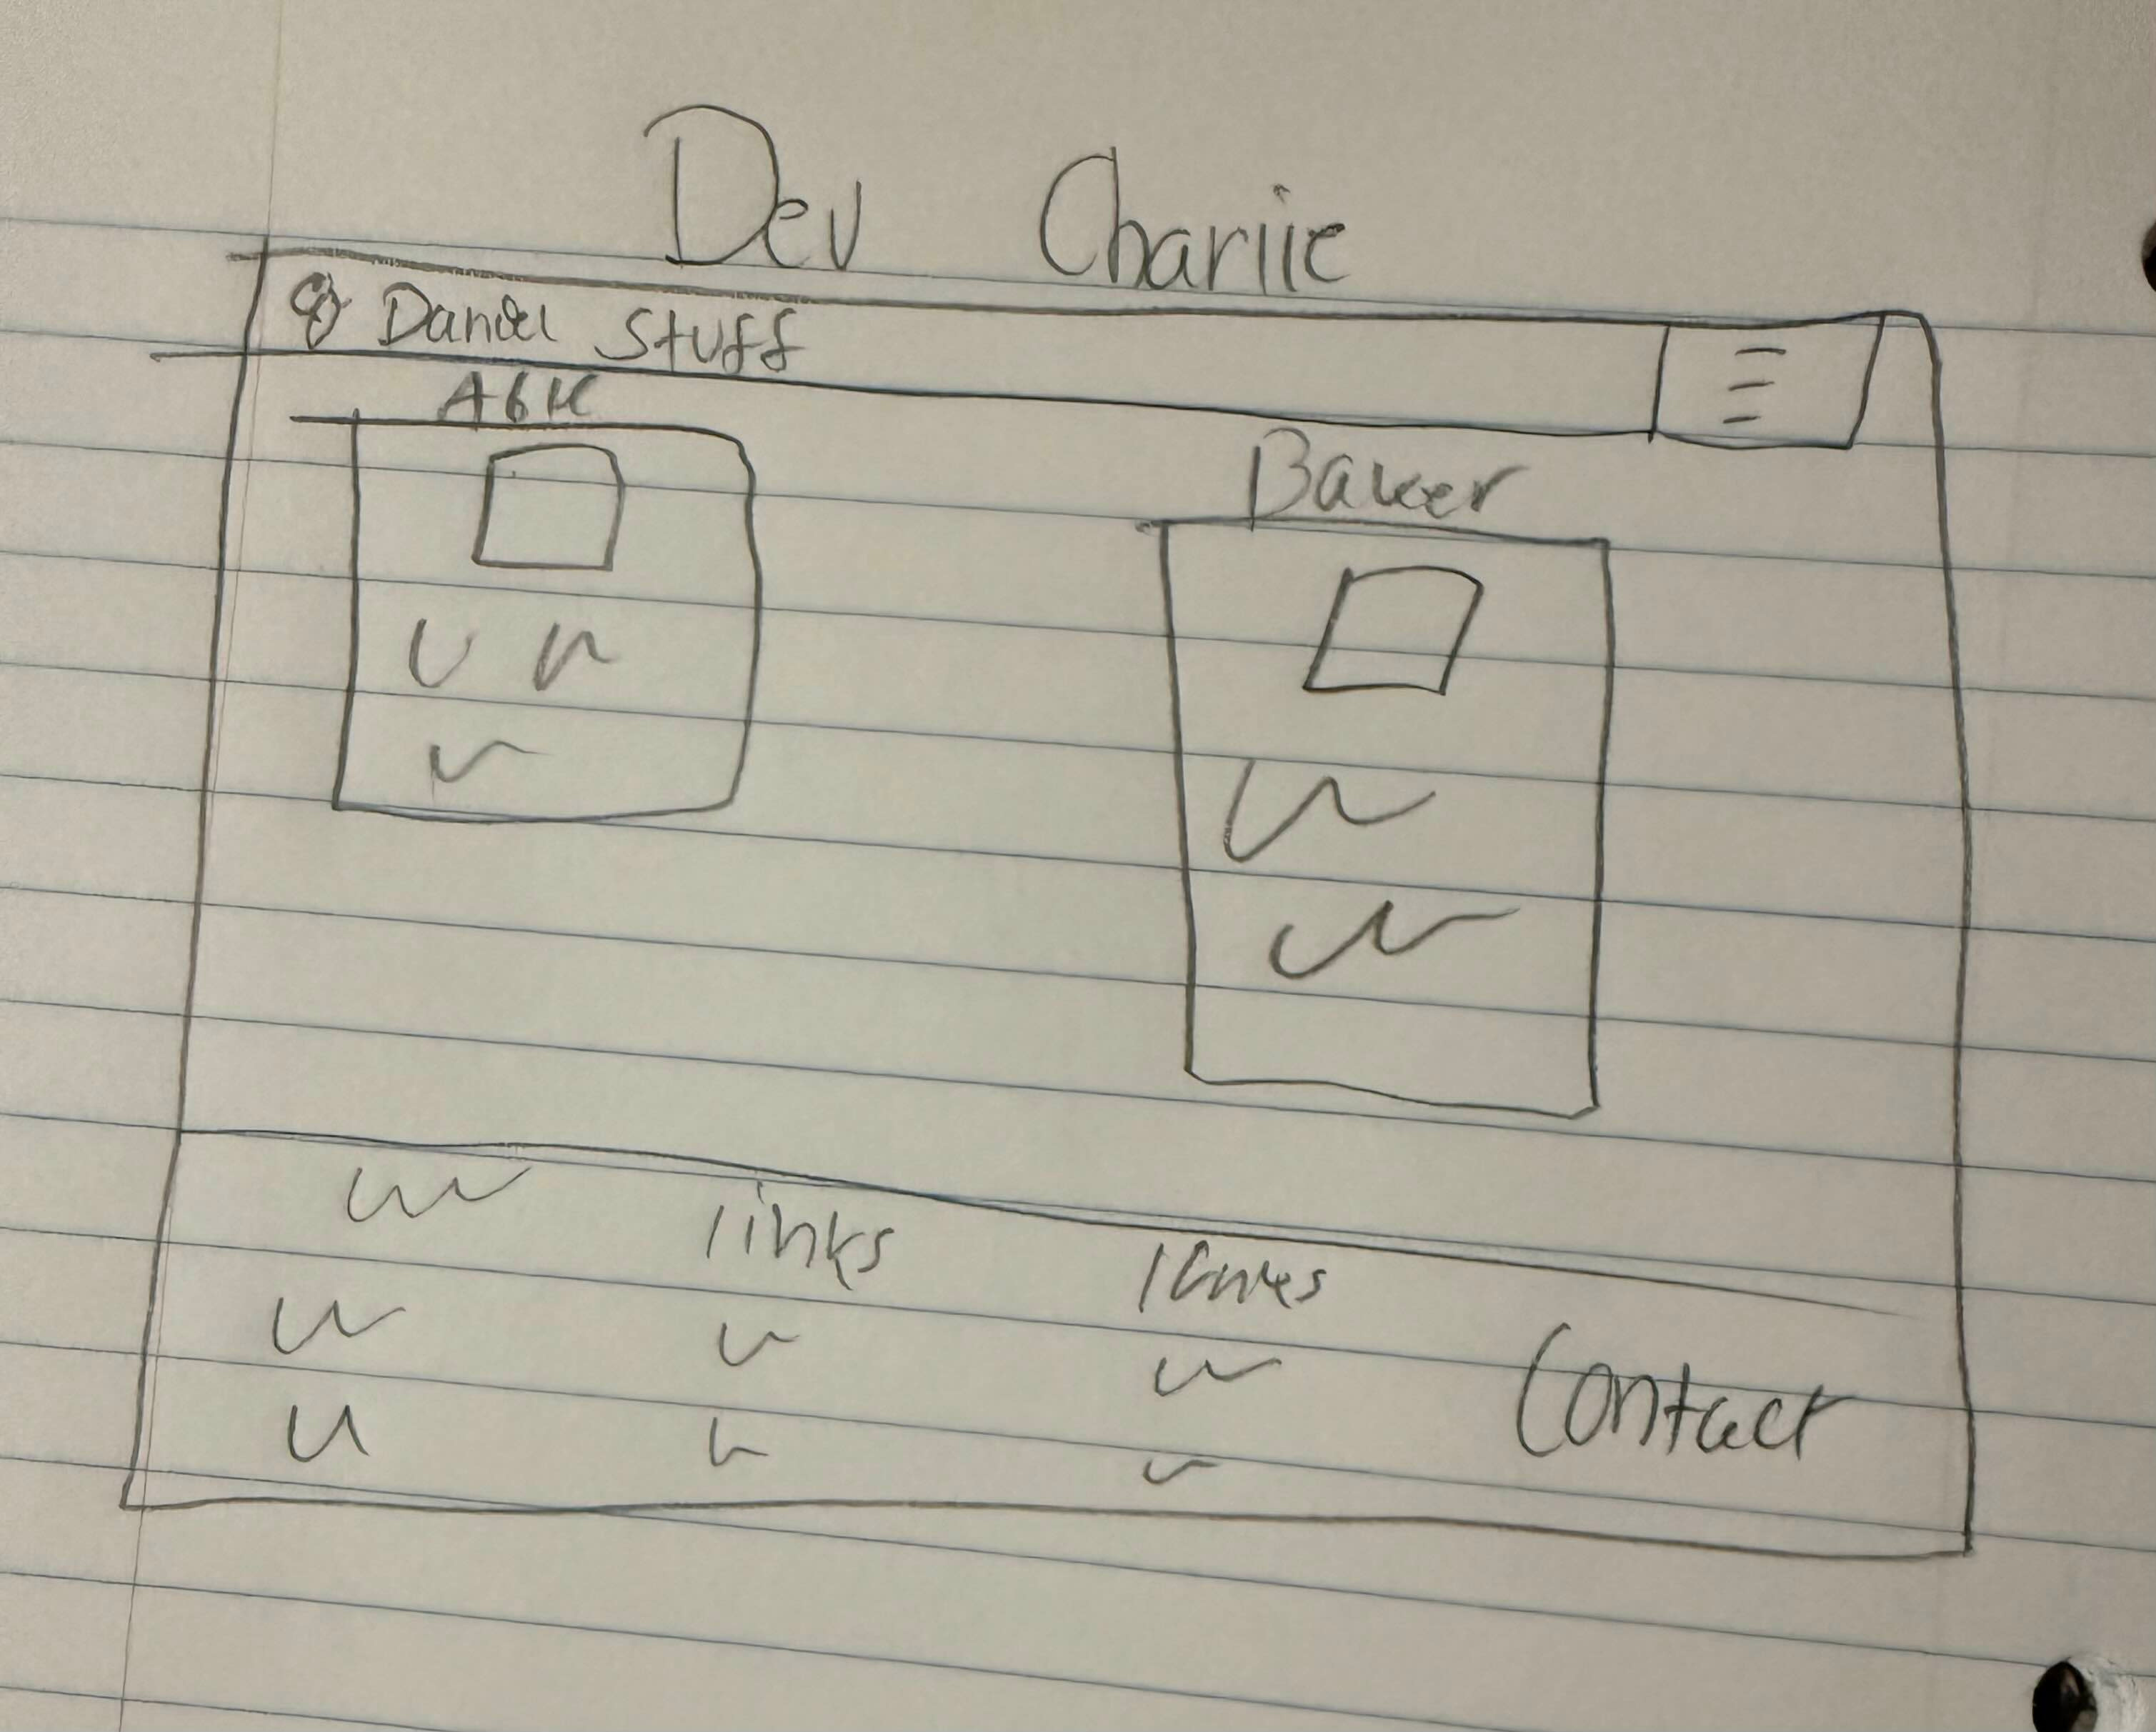 Dev Charlie
Daniel Stuff
Baker
links
links
Contact